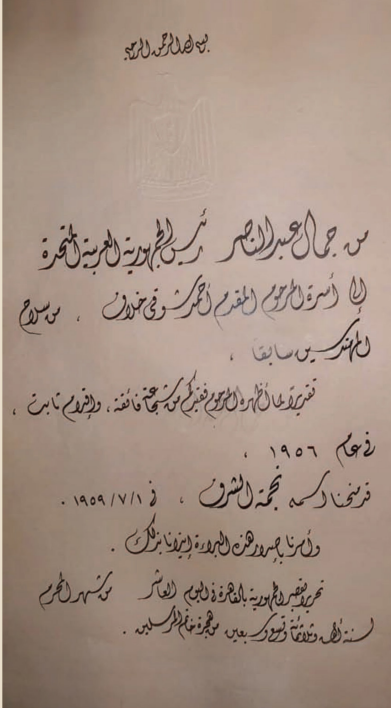 بسم الله الرحمن الرحيم
من جمال عبد الناصر رئيس الجمهورية العربية المتحدة
إلى أسرة المرحوم المقدم أحمد شوقى خلاف ، من سلاح
المهندسين سابقا ،
تقديرًا لما أظهره المرحوم فقيدكم من شجاعة فائقة ، وإقدام ثابت ،
فى عام ١٩٥٦ ،
قد منحنا اسمه نجمة الشرف ، فى ١٩٥٩/٧/١ .
وأمرنا بإصدار هذه البراءة إيذانا بذلك .
تحريرا بقصر الجمهورية بالقاهرة فى اليوم العاشر من شهر المحرم
لسنة ألف وثلاثمائة وتسع وسبعين من هجرة خاتم المرسلين .